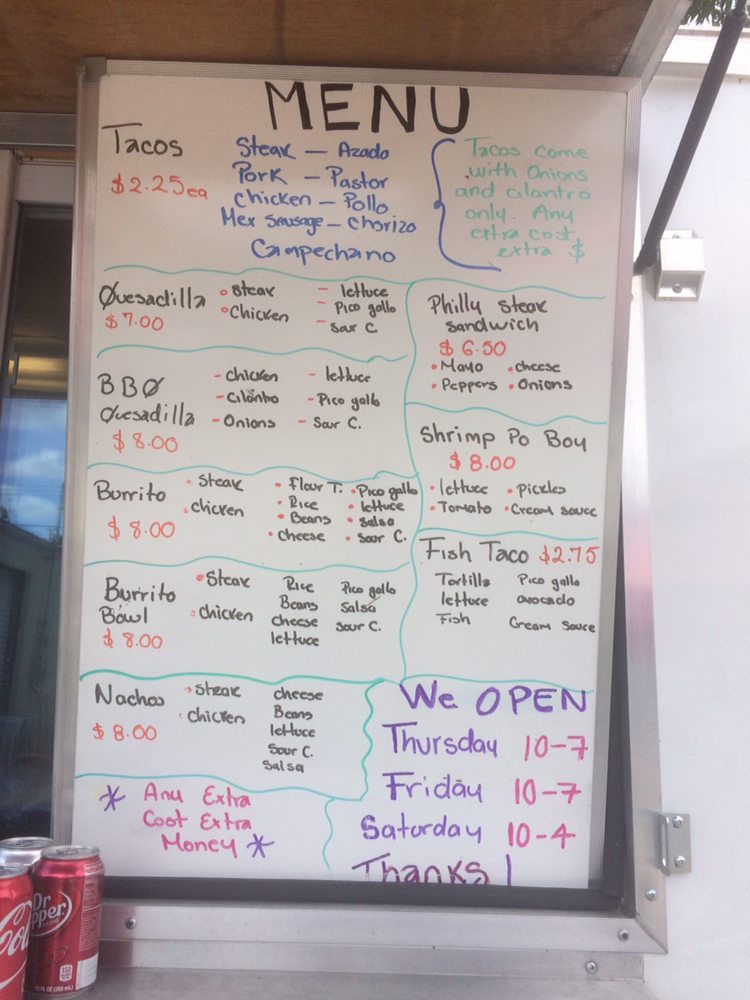 MENU
Tacos
$2.25ea
Steak — Azado
Pork — Pastor
Chicken — Pollo
Mex Sausage — Chorizo
Campechano
Tacos come
with Onions
and cilantro
only. Any
extra cost
extra $
Quesadilla
$7.00
Steak
Chicken
- lettuce
- Pico gallo
- Sour C.
BBQ
Quesadilla
$8.00
- chicken
- Cilantro
- Onions
- lettuce
- Pico gallo
- Sour C.
Burrito
$8.00
• Steak
• chicken
• Flour T.
• Rice
• Beans
• cheese
• Pico gallo
• lettuce
• salsa
• Sour C.
Burrito
Bowl
$8.00
• Steak
• chicken
Rice
Beans
cheese
lettuce
Pico gallo
Salsa
Sour C.
Nachos
$8.00
• Steak
• chicken
cheese
Beans
lettuce
Sour C.
Salsa
* Any Extra
Cost Extra
Money *
Philly Steak
Sandwich
$6.50
• Mayo • cheese
• Peppers • Onions
Shrimp Po Boy
$8.00
• lettuce • Pickles
• Tomato • Cream sauce
Fish Taco $2.75
Tortilla Pico gallo
lettuce avocado
Fish Cream Sauce
We OPEN
Thursday 10-7
Friday 10-7
Saturday 10-4
Thanks!
Dr
Pepper